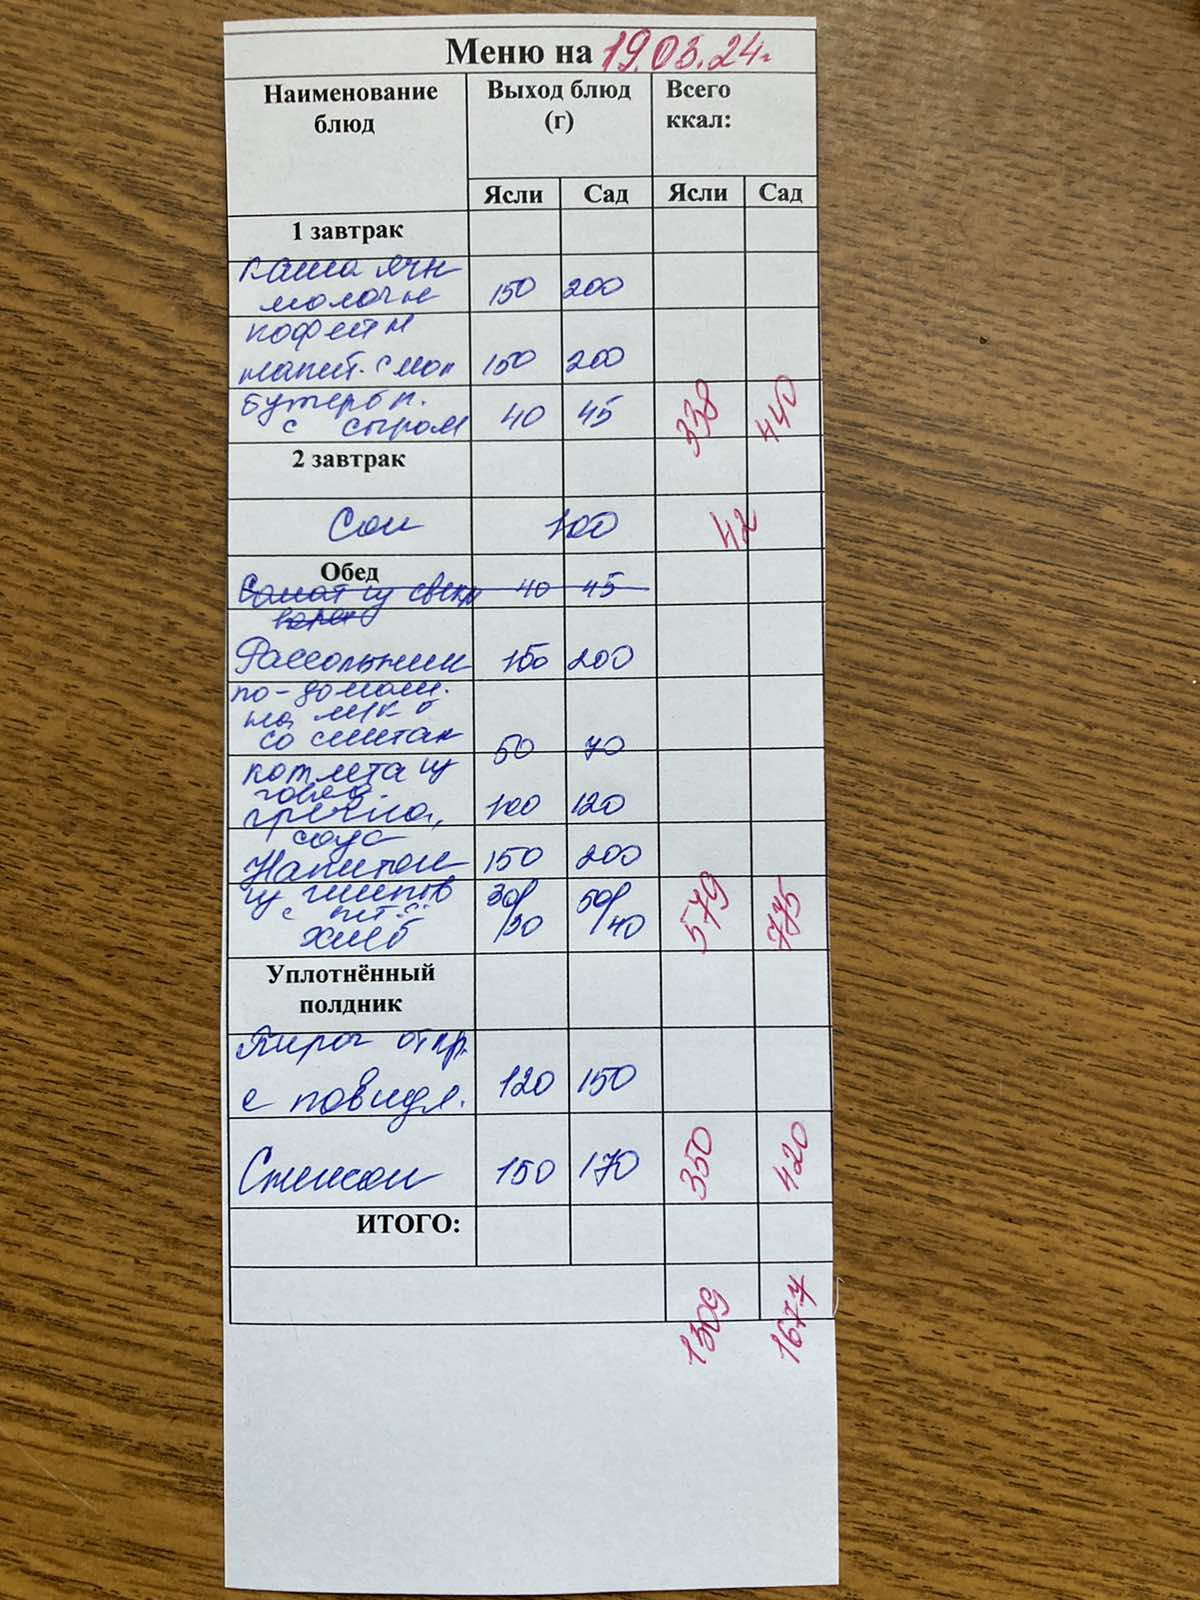 Меню на 19.03.24г
Наименование блюд Выход блюд (г) Всего ккал:
Ясли Сад Ясли Сад
1 завтрак
Каша ячн
молочн 150 200
Кофейн
напит. с мол 150 200
Бутерб п.
с сыром 40 45 338 440
2 завтрак
Сок 100 42
Обед
Салат из свекл 40 45
варен
Рассольник 150 200
по-домаш.
на мяс б
со сметан 50 70
котлета из
говяд.
гречка, 100 120
соус
Напиток 150 200
из шипов 30/20 50/40 579 775
с вит. С.
хлеб
Уплотнённый
полдник
Пирог откр.
с повидл. 120 150
Снежок 150 170 350 420
ИТОГО:
1309 1677